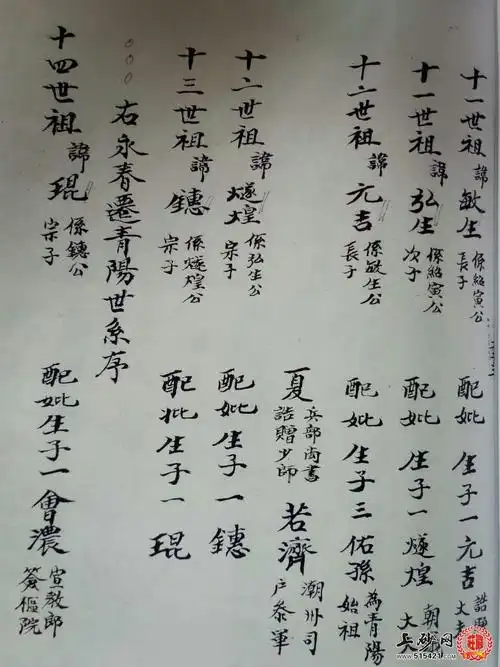 十一世祖諱敏生 係紹寅公長子 配妣 生子一元吉 誥
十一世祖諱弘生 係紹寅公次子 配妣 生子一燧煌 朝 大
十二世祖諱元吉 係敏生公長子 配妣 生子三佑孫 為青陽始祖
夏 兵部尚書誥贈少師 若濟 潮州司户參軍
十二世祖諱燧煌 係弘生公宗子 配妣 生子一鏸
十三世祖諱鏸 係燧煌公宗子 配妣 生子一琨
右永春遷青陽世系序
十四世祖諱琨 係鏸公宗子 配妣 生子一會濃 宣教郎簽樞院
上砂网
515421.com